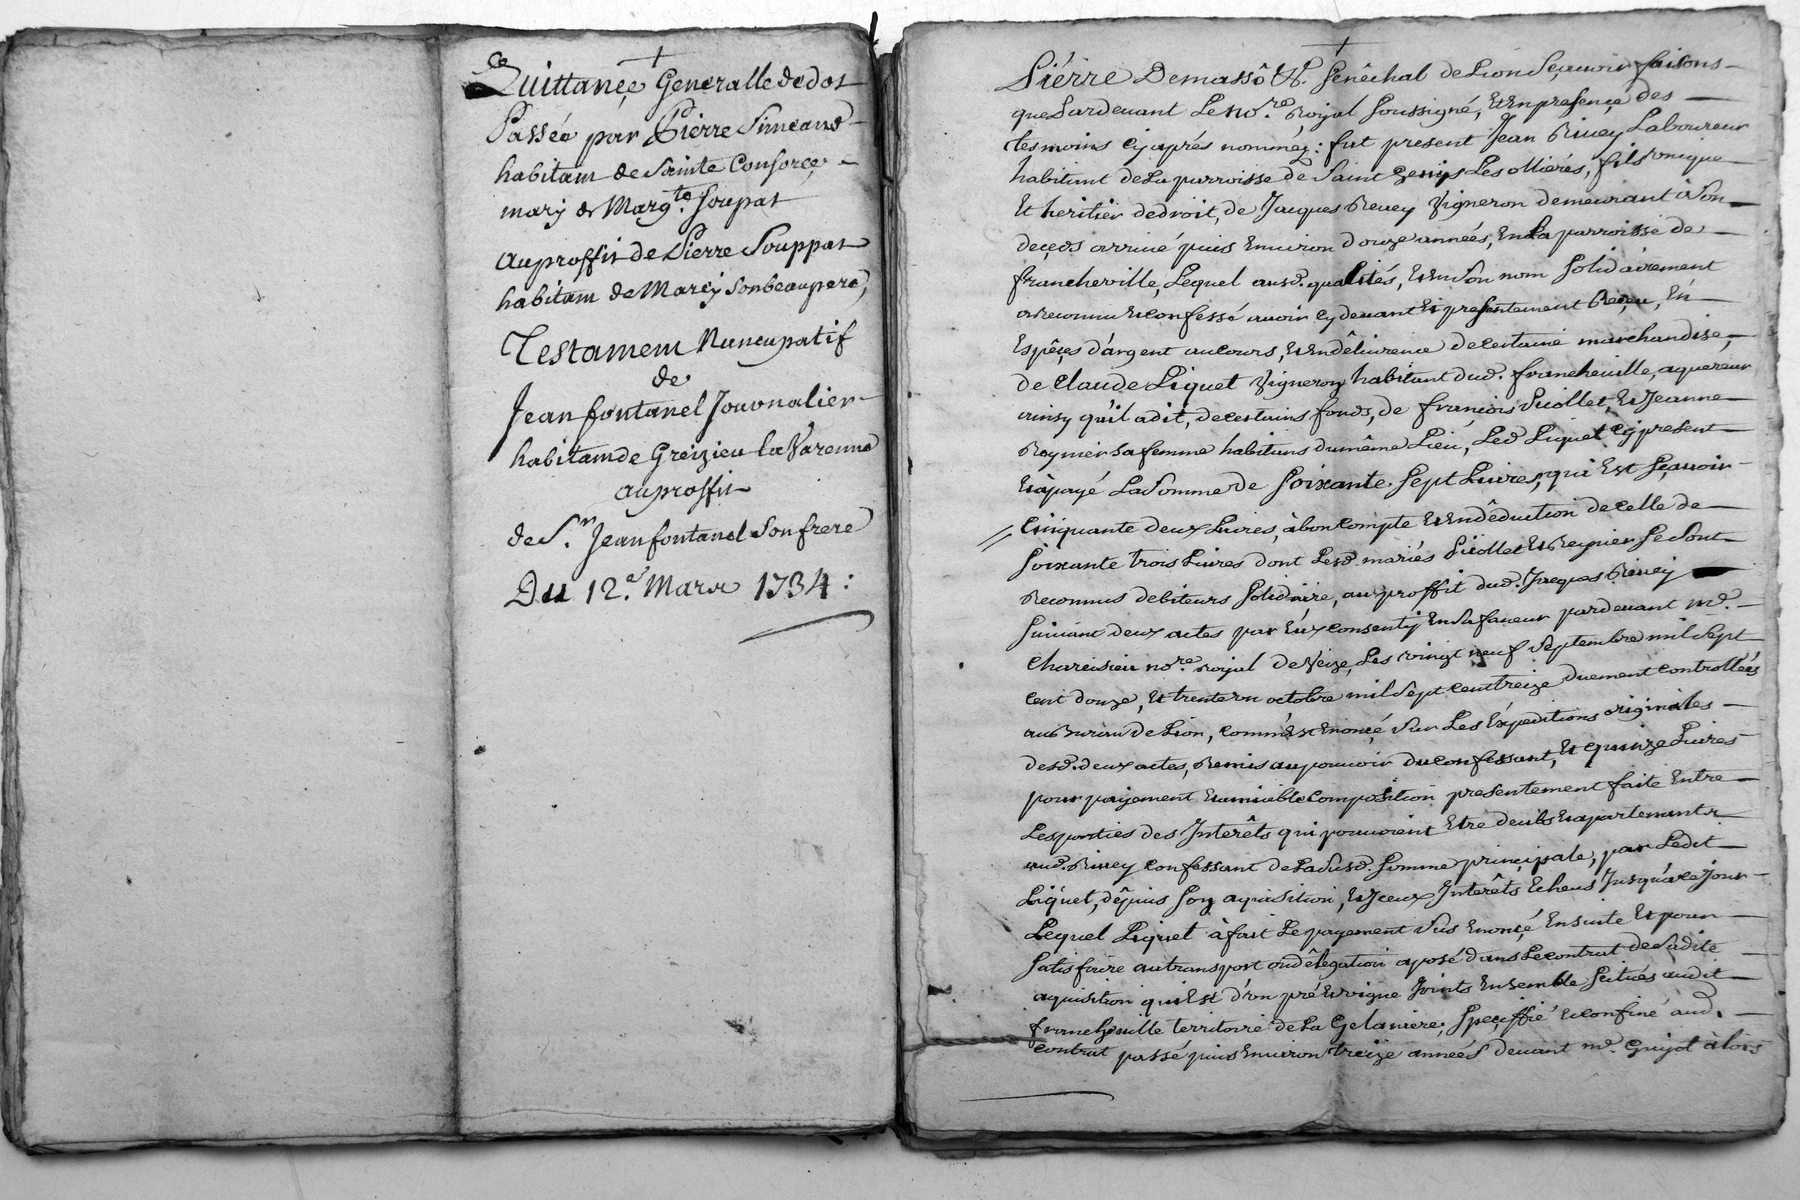 +
Quittançe Generalle de dot
Passée par Pierre Simeand
habitant de Sainte Consorçe
mary de Margte. Soupat
auproffit de Pierre Souppat
habitant de Marcy Sonbeaupere,
Testament Nuncupatif
de
Jean fontanel Journalier
habitant de Greizieu la Varenne
auproffit
de Sr. Jean fontanel Son frere
Du 12e. Mars 1734 :
+
Piérre Demassô Sénéchal de Lion Sçavoir faisons
que Pardevant Le nore. Royal Soussigné, Et En presençe des
tesmoins cy aprés nommez : fut present Jean Rivey Laboureur
habitant de La parroisse de Saint Genis Les Olliéres, fils vnique
Et heritier de droit, de Jacques Revey Vigneron demeurant à Son
deçeds arrivé puis Environ douze années, En La parroisse de
francheville, Lequel ausd. qualités, Et En Son nom Solidairement
a Reconnu Et confessé avoir cy devant Et presentement Reçeu, En
Espêçes d'argent au cours, Et En délivrence de certaine marchandise,
de Claude Liquet Vigneron habitant dud. francheville, aquereur
ainsy qu'il a dit, de certains fonds, de françois Piollet, Et Jeanne
Reynier Sa femme habitans du même Lieu, Led Liquet cy present
Et à payé La Somme de Soixante Sept Livres, qui Est Sçavoir
Cinquante deux Livres, à bon compte Et En déduction de celle de
Soixante trois Livres dont Lesd. mariés Piollet Et Reynier Se Sont
Reconnus débiteurs Solidaire, au proffit dud. Jacques Rivey
Suivant deux actes par Eux consenty En Sa faveur pardevant me.
Charcisieu nore. royal de Veize, Les vingt neuf Septembre mil Sept
cent douze, Et trente vn octobre mil Sept cent treize duement controllées
au Bureau de Lion, comme Est Enonçé Sur Les Expeditions originales
desd. deux actes, Remis au pouvoir du confessant, Et quinze Livres
pour payement Et amiable composition presentement faite Entre
Les parties des Interêts qui pouvoient Etre deubs Et apartenants
aud. Rivey confessant de La Susd. Somme prinçipale, par Ledit
Liquet, dépuis Son aquisition, Et Jceux Interêts Echeus Jusqu'à ce jour
Lequel Liquet à fait Le payement Sus Enonçé Ensuite Et pour
Satisfaire au transport ou délegation aposé dans Le contrat de Sadite
aquisition qui Est d'vn pré Et vigne Joints Ensemble Scitués audit
francheville territoire de La Gelaniere, Speçiffié Et confiné aud.
contrat passé puis Environ treize années devant me. Guyot alors